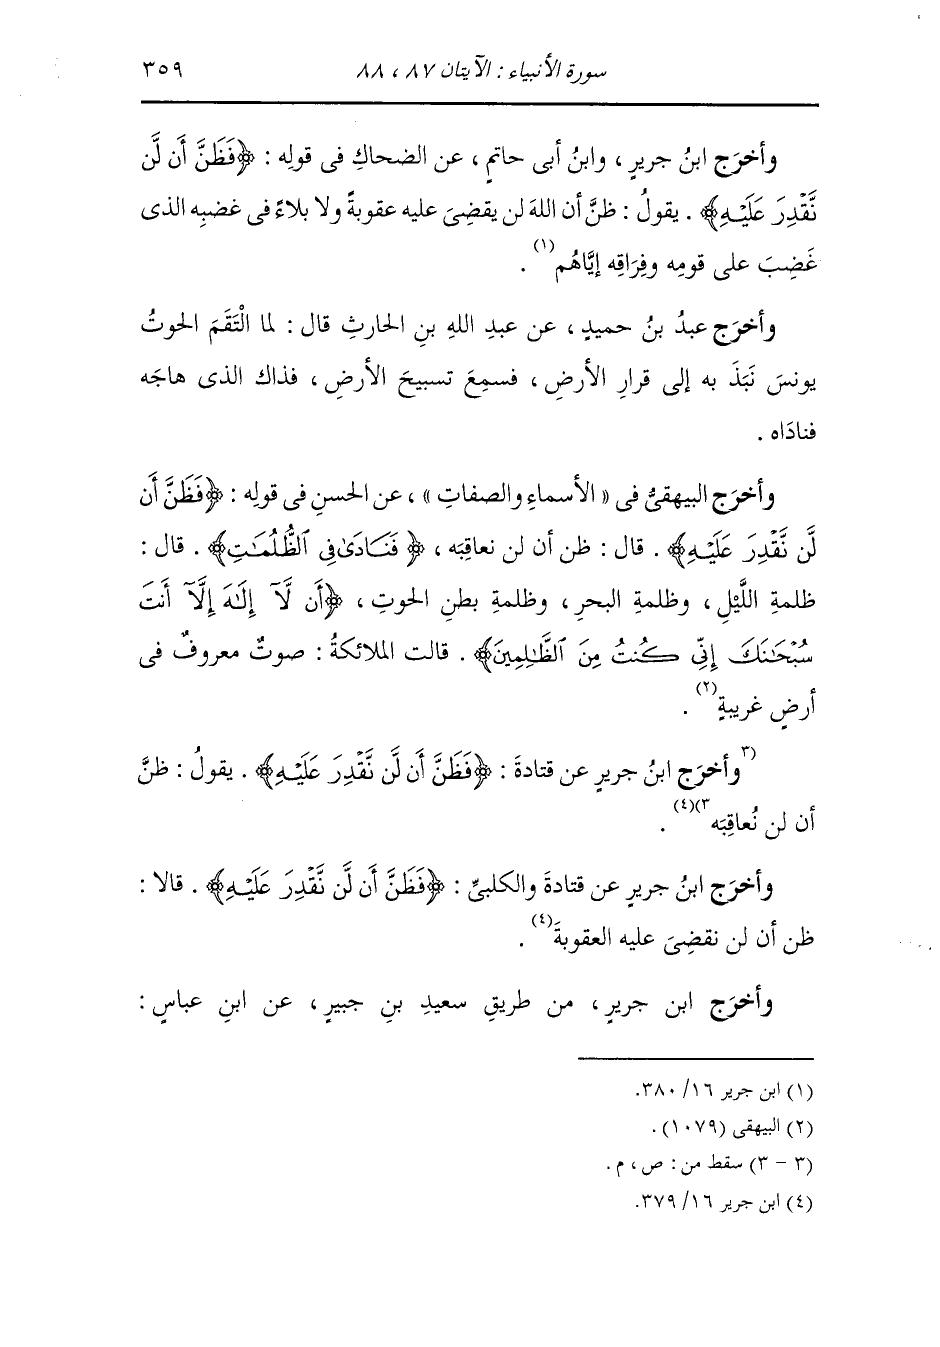 سورة الأنبياء : الآيتان ٨٧ ، ٨٨ ٣٥٩
وأخرَج ابنُ جريرٍ ، وابنُ أبى حاتمٍ ، عن الضحاكِ فى قولِه : ﴿فَظَنَّ أَن لَّن
نَّقْدِرَ عَلَيْهِ﴾ . يقولُ : ظنَّ أن اللهَ لن يقضِىَ عليه عقوبةً ولا بلاءً فى غضبِه الذى
غَضِبَ على قومِه وفِرَاقِه إيَّاهُم(١) .
وأخرَج عبدُ بنُ حميدٍ ، عن عبدِ اللهِ بنِ الحارثِ قال : لما الْتَقَمَ الحوتُ
يونسَ نَبَذَ به إلى قرارِ الأرضِ ، فسمِعَ تسبيحَ الأرضِ ، فذاك الذى هاجَه
فنادَاه .
وأخرَج البيهقىُّ فى « الأسماءِ والصفاتِ » ، عن الحسنِ فى قولِه : ﴿فَظَنَّ أَن
لَّن نَّقْدِرَ عَلَيْهِ﴾ . قال : ظن أن لن نعاقِبَه ، ﴿ فَنَادَىٰ فِى ٱلظُّلُمَـٰتِ﴾ . قال :
ظلمةِ اللَّيْلِ ، وظلمةِ البحرِ ، وظلمةِ بطنِ الحوتِ ، ﴿أَن لَّآ إِلَـٰهَ إِلَّآ أَنتَ
سُبْحَـٰنَكَ إِنِّى كُنتُ مِنَ ٱلظَّـٰلِمِينَ﴾ . قالت الملائكةُ : صوتٌ معروفٌ فى
أرضٍ غريبةٍ(٢) .
(٣وأخرَج ابنُ جريرٍ عن قتادةَ : ﴿فَظَنَّ أَن لَّن نَّقْدِرَ عَلَيْهِ﴾ . يقولُ : ظنَّ
أن لن نُعاقِبَه٣)(٤) .
وأخرَج ابنُ جريرٍ عن قتادةَ والكلبىِّ : ﴿فَظَنَّ أَن لَّن نَّقْدِرَ عَلَيْهِ﴾ . قالا :
ظن أن لن نقضِىَ عليه العقوبةَ(٤) .
وأخرَج ابن جريرٍ ، من طريقِ سعيدِ بنِ جبيرٍ ، عن ابنِ عباسٍ :
(١) ابن جرير ١٦/ ٣٨٠.
(٢) البيهقى (١٠٧٩) .
(٣ – ٣) سقط من : ص ، م .
(٤) ابن جرير ١٦/ ٣٧٩.